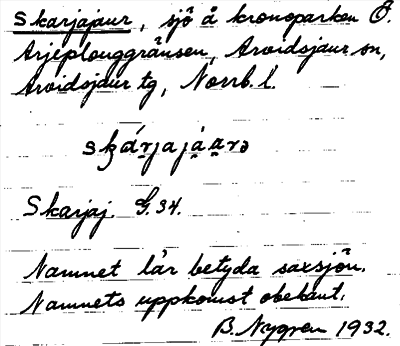 Skarjajaur, sjö å kronoparken Ö.
Arjeplouggränsen, Arvidsjaur sn,
Arvidsjaur tg, Norrb. l.
Skarjaj. G.34.
Namnet lär betyda saxsjön.
Namnets uppkomst obekant.
B. Nygren 1932.